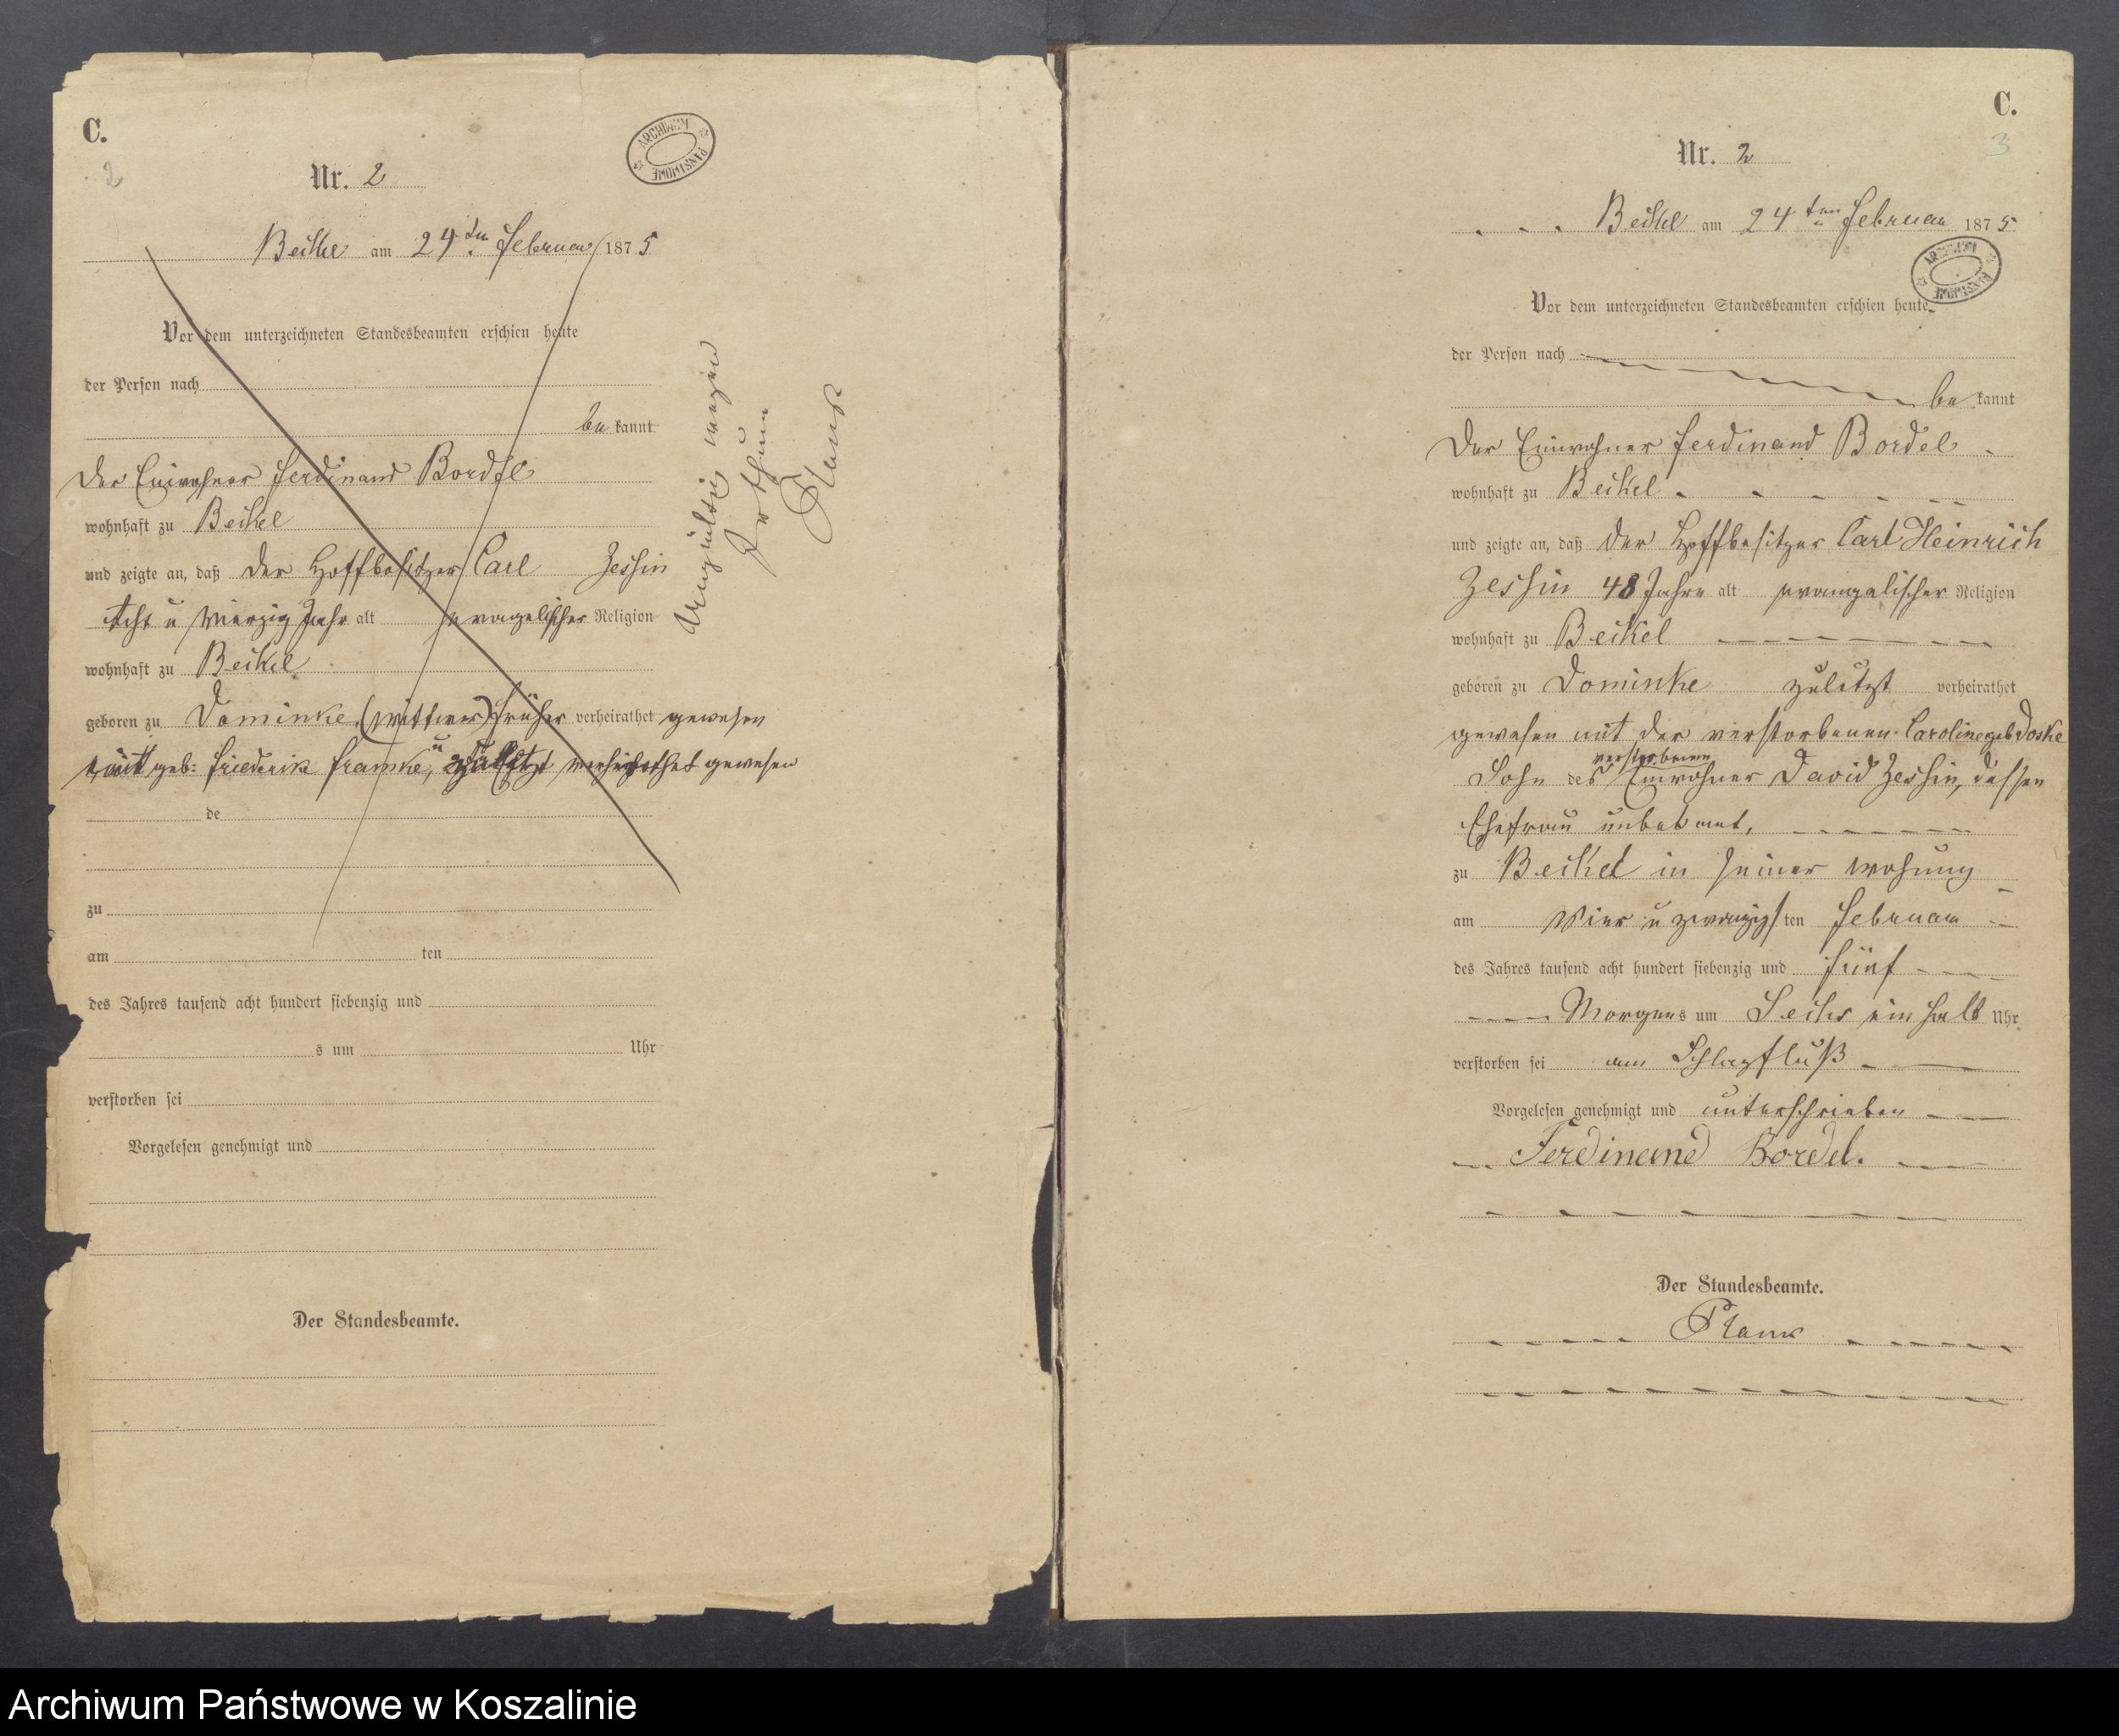 C.
2
Nr. 2
ARCHIWUM PAŃSTWOWE
Beikel am 24ten Februar 1875
Vor dem unterzeichneten Standesbeamten erschien heute
der Person nach
be kannt
Der Einwohner Ferdinand Bordel
wohnhaft zu Beikel
und zeigte an, daß der Hoffbesitzer Carl Zessin
Acht u Vierzig Jahr alt evangelischer Religion
wohnhaft zu Beikel
geboren zu Dominke, (Wittwer) früher verheirathet gewesen
mit geb: Friederik Framke, u zuletzt verheirathet gewesen
de
zu
am ten
des Jahres tausend acht hundert siebenzig und
s um Uhr
verstorben sei
Vorgelesen genehmigt und
Der Standesbeamte.
Ungültig wegen
Irthum
Plank
C.
3
Nr. 2
Beikel am 24ten Februar 1875
ARCHIWUM PAŃSTWOWE
Vor dem unterzeichneten Standesbeamten erschien heute
der Person nach
be kannt
Der Einwohner Ferdinand Bordel
wohnhaft zu Beikel
und zeigte an, daß der Hoffbesitzer Carl Heinrich
Zessin 48 Jahre alt evangelischer Religion
wohnhaft zu Beikel
geboren zu Dominke zuletzt verheirathet
gewesen mit der verstorbenen Caroline geb Doske
Sohn des verstorbenen Einwohner David Zessin, dessen
Ehefrau unbekannt,
zu Beikel in seiner Wohnung
am Vier u zwanzigsten Februar
des Jahres tausend acht hundert siebenzig und fünf
Morgens um Sechs ein halb Uhr
verstorben sei am Schlagfluß
Vorgelesen genehmigt und unterschrieben
Ferdinand Bordel.
Der Standesbeamte.
Plank
Archiwum Państwowe w Koszalinie